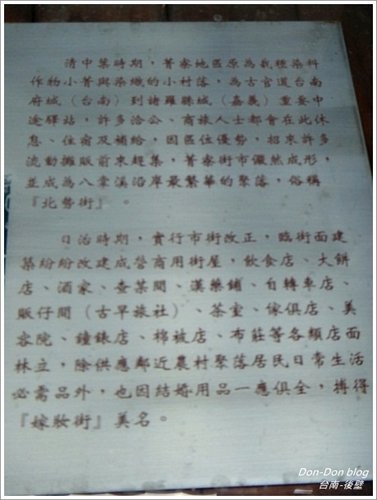 清中葉時期，菁寮地區原為栽種染料
作物小菁與染織的小村落，為古官道台南
府城（台南）到諸羅縣城（嘉義）重要中
途驛站，許多洽公、商旅人士都會在此休
息、住宿及補給，因區位優勢，招來許多
流動攤販前來趕集，菁寮街市儼然成形，
並成為八掌溪沿岸最繁華的聚落，俗稱
『北勢街』。
日治時期，實行市街改正，臨街面建
築紛紛改建成營商用街屋，飲食店、大餅
店、酒家、查某間、漢藥鋪、自轉車店、
販仔間（古早旅社）、茶室、傢俱店、美
容院、鐘錶店、棉被店、布莊等各類店面
林立，除供應鄰近農村聚落居民日常生活
必需品外，也因結婚用品一應俱全，搏得
『嫁妝街』美名。
Don-Don blog
台南-後壁